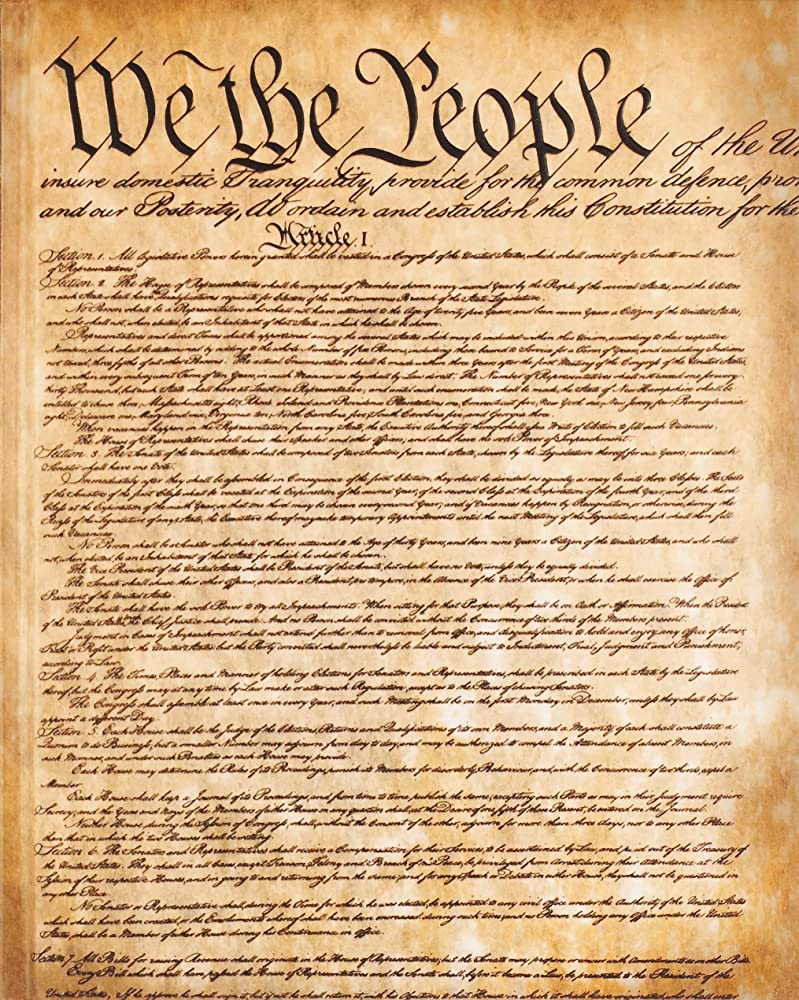 We the People of the Un
insure domestic Tranquility, provide for the common defence, pro
and our Posterity, do ordain and establish this Constitution for the
Article. I.
Section 1. All legislative Powers herein granted shall be vested in a Congress of the United States, which shall consist of a Senate and House
of Representatives.
Section 2. The House of Representatives shall be composed of Members chosen every second Year by the People of the several States, and the Electors
in each State shall have Qualifications requisite for Electors of the most numerous Branch of the State Legislature.
No Person shall be a Representative who shall not have attained to the Age of twenty five Years, and been seven Years a Citizen of the United States,
and who shall not, when elected, be an Inhabitant of that State in which he shall be chosen.
Representatives and direct Taxes shall be apportioned among the several States which may be included within this Union, according to their respective
Numbers, which shall be determined by adding to the whole Number of free Persons, including those bound to Service for a Term of Years, and excluding Indians
not taxed, three fifths of all other Persons. The actual Enumeration shall be made within three Years after the first Meeting of the Congress of the United States,
and within every subsequent Term of ten Years, in such Manner as they shall by Law direct. The Number of Representatives shall not exceed one for every
thirty Thousand, but each State shall have at Least one Representative; and until such enumeration shall be made, the State of New Hampshire shall be
entitled to chuse three, Massachusetts eight, Rhode Island and Providence Plantations one, Connecticut five, New York six, New Jersey four, Pennsylvania
eight, Delaware one, Maryland six, Virginia ten, North Carolina five, South Carolina five, and Georgia three.
When vacancies happen in the Representation from any State, the Executive Authority thereof shall issue Writs of Election to fill such Vacancies.
The House of Representatives shall chuse their Speaker and other Officers; and shall have the sole Power of Impeachment.
Section. 3. The Senate of the United States shall be composed of two Senators from each State, chosen by the Legislature thereof, for six Years; and each
Senator shall have one Vote.
Immediately after they shall be assembled in Consequence of the first Election, they shall be divided as equally as may be into three Classes. The Seats
of the Senators of the first Class shall be vacated at the Expiration of the second Year, of the second Class at the Expiration of the fourth Year, and of the third
Class at the Expiration of the sixth Year, so that one third may be chosen every second Year; and if Vacancies happen by Resignation, or otherwise, during the
Recess of the Legislature of any State, the Executive thereof may make temporary Appointments until the next Meeting of the Legislature, which shall then fill
such Vacancies.
No Person shall be a Senator who shall not have attained to the Age of thirty Years, and been nine Years a Citizen of the United States, and who shall
not, when elected, be an Inhabitant of that State for which he shall be chosen.
The Vice President of the United States shall be President of the Senate, but shall have no Vote, unless they be equally divided.
The Senate shall chuse their other Officers, and also a President pro tempore, in the Absence of the Vice President, or when he shall exercise the Office of
President of the United States.
The Senate shall have the sole Power to try all Impeachments. When sitting for that Purpose, they shall be on Oath or Affirmation. When the President
of the United States, the Chief Justice shall preside: And no Person shall be convicted without the Concurrence of two thirds of the Members present.
Judgment in Cases of Impeachment shall not extend further than to removal from Office, and disqualification to hold and enjoy any Office of honor,
Trust or Profit under the United States: but the Party convicted shall nevertheless be liable and subject to Indictment, Trial, Judgment and Punishment,
according to Law.
Section. 4. The Times, Places and Manner of holding Elections for Senators and Representatives, shall be prescribed in each State by the Legislature
thereof; but the Congress may at any time by Law make or alter such Regulations, except as to the Places of chusing Senators.
The Congress shall assemble at least once in every Year, and such Meeting shall be on the first Monday in December, unless they shall by Law
appoint a different Day.
Section. 5. Each House shall be the Judge of the Elections, Returns and Qualifications of its own Members, and a Majority of each shall constitute a
Quorum to do Business; but a smaller Number may adjourn from day to day, and may be authorized to compel the Attendance of absent Members, in
such Manner, and under such Penalties as each House may provide.
Each House may determine the Rules of its Proceedings, punish its Members for disorderly Behaviour, and, with the Concurrence of two thirds, expel a
Member.
Each House shall keep a Journal of its Proceedings, and from time to time publish the same, excepting such Parts as may in their Judgment require
Secrecy; and the Yeas and Nays of the Members of either House on any question shall, at the Desire of one fifth of those Present, be entered on the Journal.
Neither House, during the Session of Congress, shall, without the Consent of the other, adjourn for more than three days, nor to any other Place
than that in which the two Houses shall be sitting.
Section. 6. The Senators and Representatives shall receive a Compensation for their Services, to be ascertained by Law, and paid out of the Treasury of
the United States. They shall in all Cases, except Treason, Felony and Breach of the Peace, be privileged from Arrest during their Attendance at the
Session of their respective Houses, and in going to and returning from the same; and for any Speech or Debate in either House, they shall not be questioned in
any other Place.
No Senator or Representative shall, during the Time for which he was elected, be appointed to any civil Office under the Authority of the United States
which shall have been created, or the Emoluments whereof shall have been encreased during such time; and no Person holding any Office under the United
States, shall be a Member of either House during his Continuance in Office.
Section. 7. All Bills for raising Revenue shall originate in the House of Representatives; but the Senate may propose or concur with Amendments as on other Bills.
Every Bill which shall have passed the House of Representatives and the Senate, shall, before it become a Law, be presented to the President of the
United States; If he approve he shall sign it, but if not he shall return it, with his Objections to that House in which it shall have originated, who shall enter